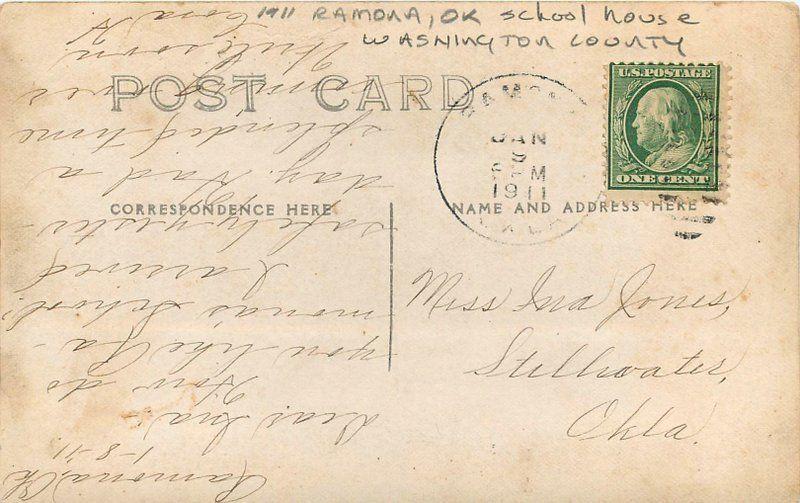 1911 RAMONA, OK school house
WASHINGTON COUNTY
POST CARD
U.S. POSTAGE
ONE CENT
RAMONA
JAN
PM
1911
OKLA
CORRESPONDENCE HERE
NAME AND ADDRESS HERE
Miss Ina Jones,
Stillwater,
Okla.
Ramona, Ok
1-8-11.
Dear Ina
How do
you like Ra-
mona's School?
I arrived
safely yester-
day. Had a
splendid time
over
Cora H.